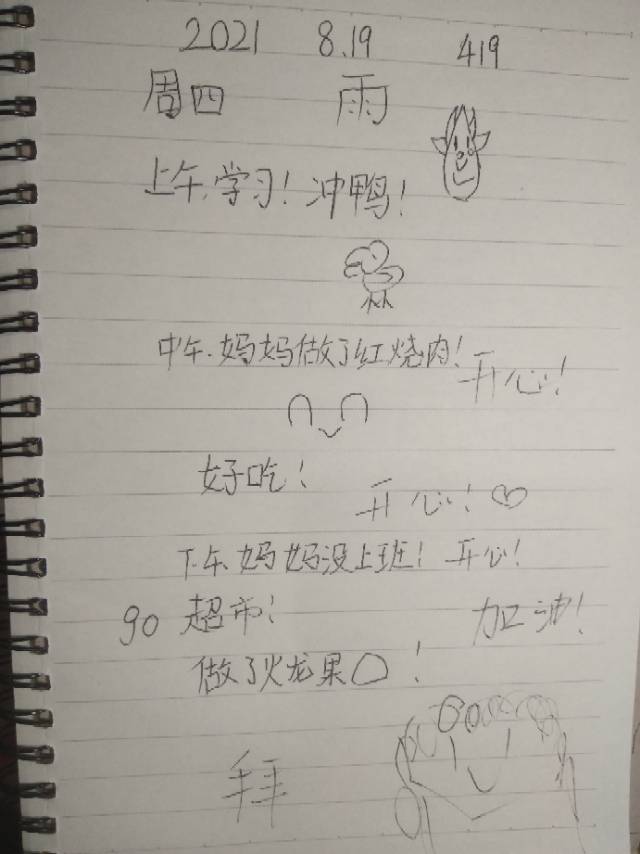 2021 8.19 419
周四 雨
上午.学习！冲鸭！
中午.妈妈做了红烧肉！
开心！
好吃！
开心！♡
下午.妈妈没上班！开心！
go 超市！ 加油！
做了火龙果〇！
拜